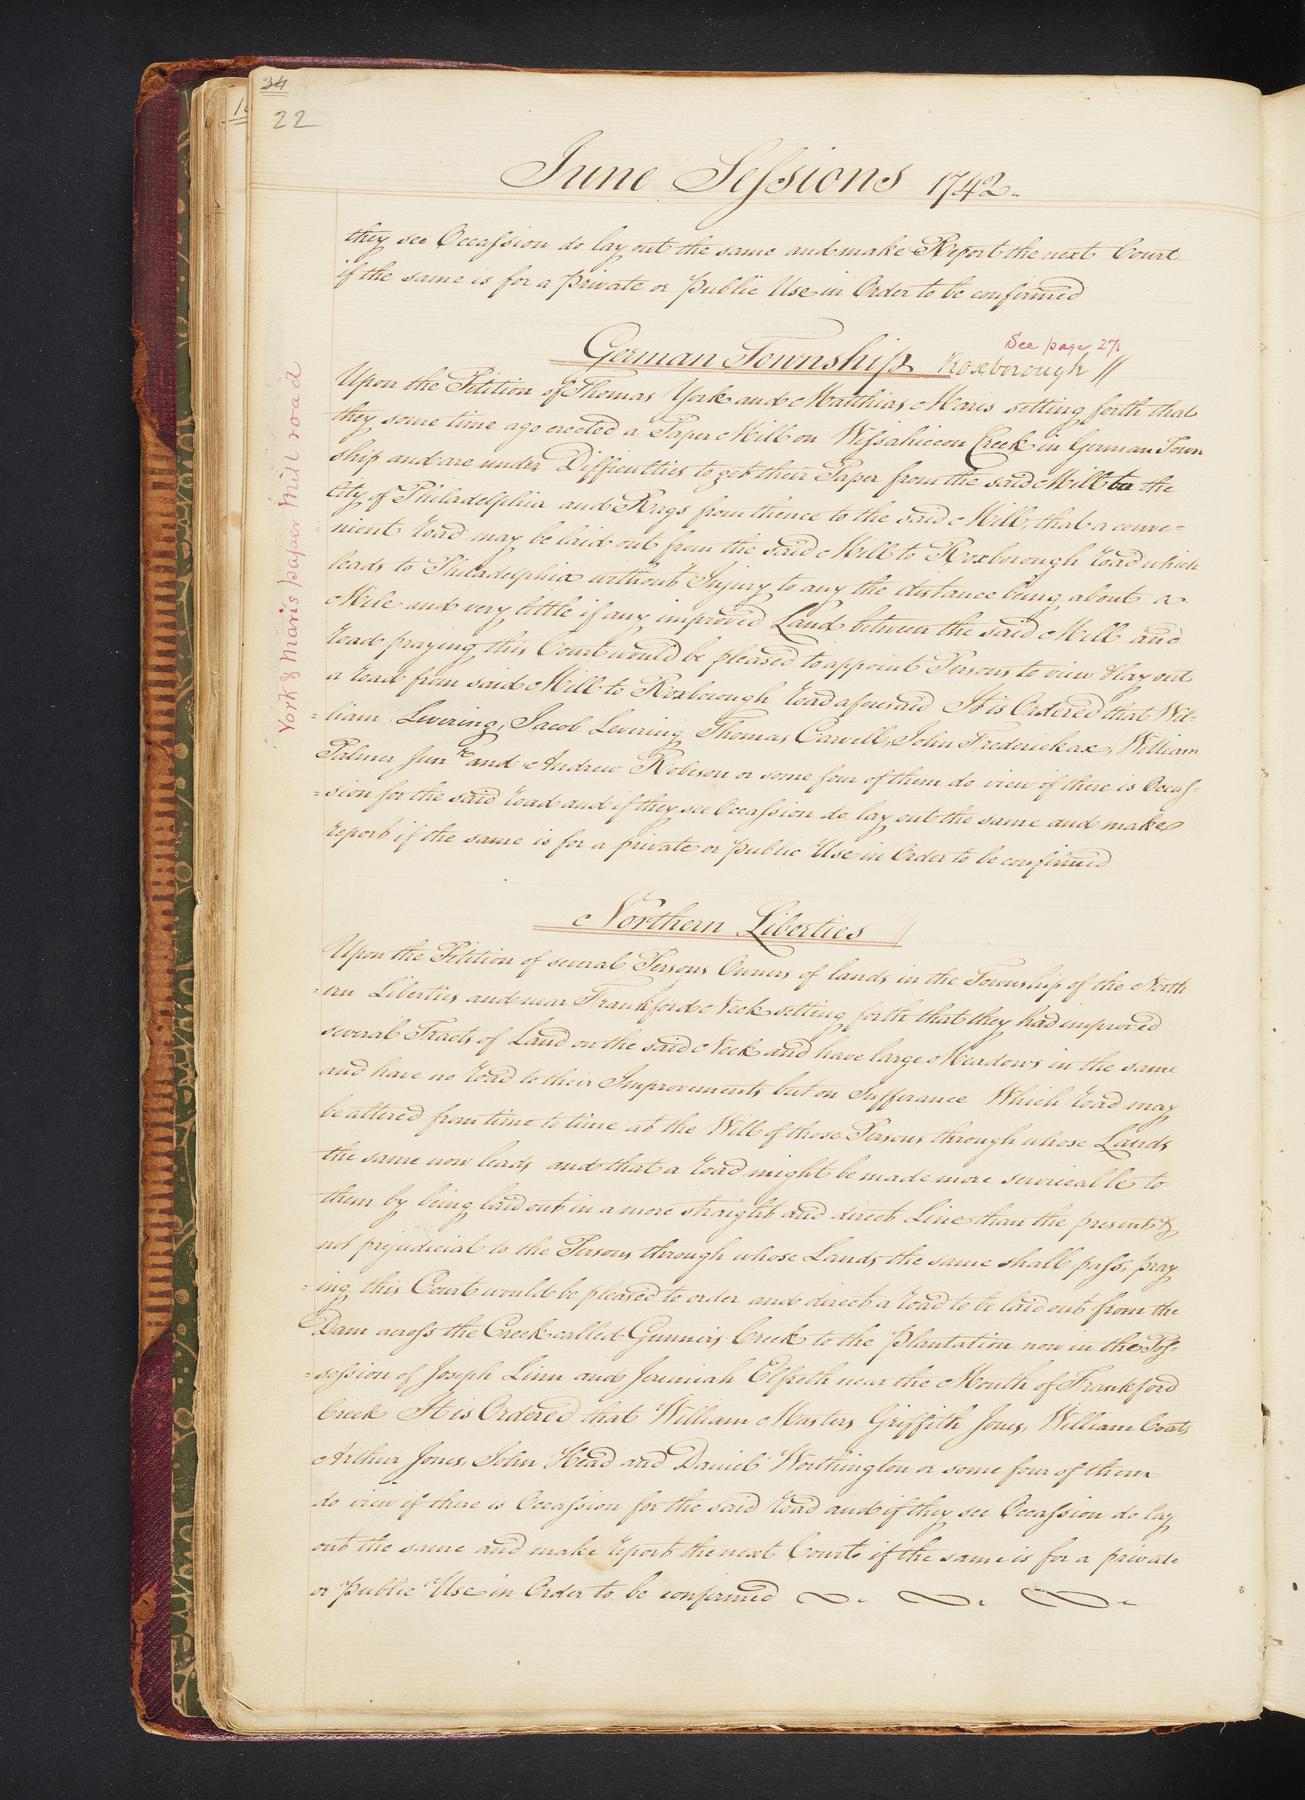 34
22
June Sessions 1742.
they see Occassion do lay out the same and make Report the next Court
if the same is for a private or public Use in Order to be confirmed
See page 27
German Township Roxborough //
Upon the Petition of Thomas York and Matthias Maris setting forth that
they some time ago erected a Paper Mill on Wissahiccon Creek in German Town
ship and are under Difficulties to get their Paper from the said Mill to the
City of Philadelphia and Rags from thence to the said Mill, that a conve=
nient Road may be laid out from the said Mill to Roxborough Road which
leads to Philadelphia without Injury to any the distance being about a
Mile and very little if any improved Land between the said Mill and
Road praying this Court would be pleased to appoint Persons to view & lay out
a Road from said Mill to Roxborough Road aforesaid It is Ordered that Wil=
=liam Levering, Jacob Levering, Thomas Carvell, John Frederick ax, William
Palmer Junr and Andrew Robeson or some four of them do view if there is Occas=
=sion for the said Road and if they see Occassion do lay out the same and make
report if the same is for a private or public Use in Order to be confirmed
York & Maris paper Mill road
Northern Liberties //
Upon the Petition of several Persons Owners of lands in the Township of the North
=ern Liberties and near Frankford Neck setting forth that they had improved
several Tracts of Land on the said Neck and have large Meadows in the same
and have no Road to their Improvements but on Sufferance Which Road may
be altered from time to time at the Will of those Persons through whose Lands
the same now leads and that a Road might be made more serviceable to
them by being laid out in a more straight and direct Line than the present &
not prejudicial to the Persons through whose Lands the same shall pass, pray
=ing this Court would be pleased to order and direct a Road to be laid out from the
Dam across the Creek called Gunners Creek to the Plantation now in the Pos=
=session of Joseph Linn and Jeremiah Elfreth near the Mouth of Frankford
Creek It is Ordered that William Masters, Griffith Jones, William Coats
Arthur Jones, John Head and Daniel Worthington or some four of them
do view if there is Occassion for the said Road and if they see Occassion do lay
out the same and make report the next Court if the same is for a private
or public Use in Order to be confirmed